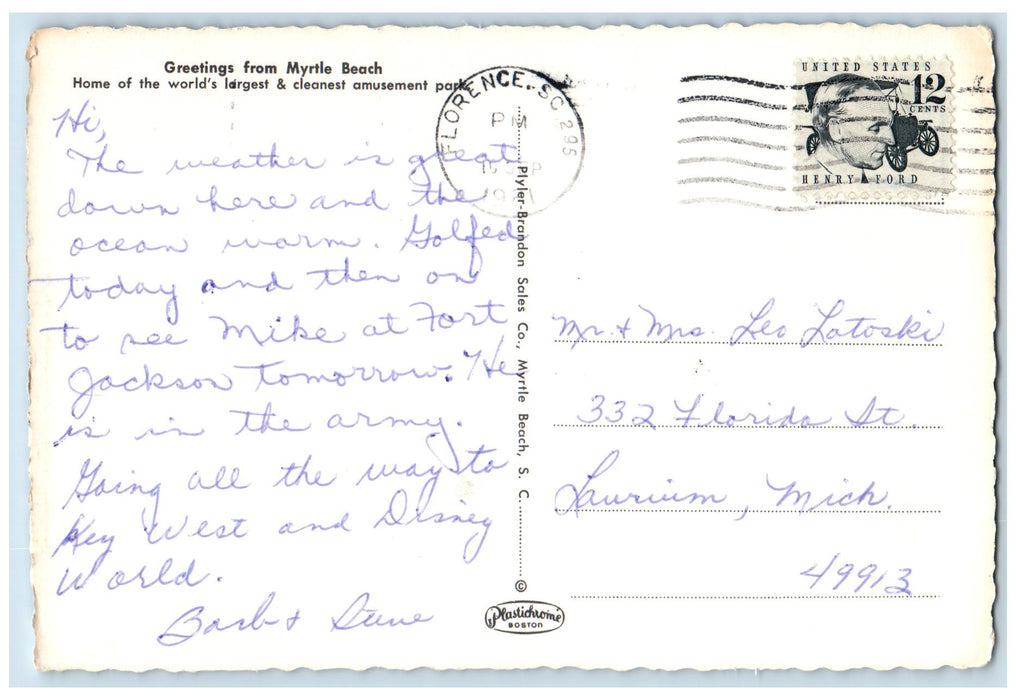 Greetings from Myrtle Beach
Home of the world's largest & cleanest amusement park.
Hi,
The weather is great
down here and the
ocean warm. Golfed
today and then on
to see Mike at Fort
Jackson tomorrow. He
is in the army.
Going all the way to
Key West and Disney
World.
Barb + Steve
Plyler-Brandon Sales Co., Myrtle Beach, S. C.
©
Plastichrome
BOSTON
FLORENCE, SC 295
PM
UNITED STATES
12
CENTS
HENRY FORD
Mr. + Mrs. Leo Latoski
332 Florida St.
Laurium, Mich.
49913